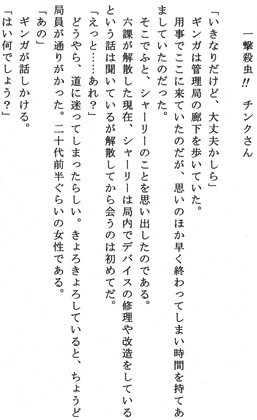 一撃殺虫!! チンクさん
「いきなりだけど、大丈夫かしら」
ギンガは管理局の廊下を歩いていた。
用事でここに来ていたのだが、思いのほか早く終わってしまい時間を持てあ
ましていたのだった。
そこでふと、シャーリーのことを思い出したのである。
六課が解散した現在、シャーリーは局内でデバイスの修理や改造をしている
という話は聞いているが解散してから会うのは初めてだ。
「えっと……あれ?」
どうやら、道に迷ってしまったらしい。きょろきょろしていると、ちょうど
局員が通りがかった。二十代前半ぐらいの女性である。
「あの」
ギンガが話しかける。
「はい何でしょう?」